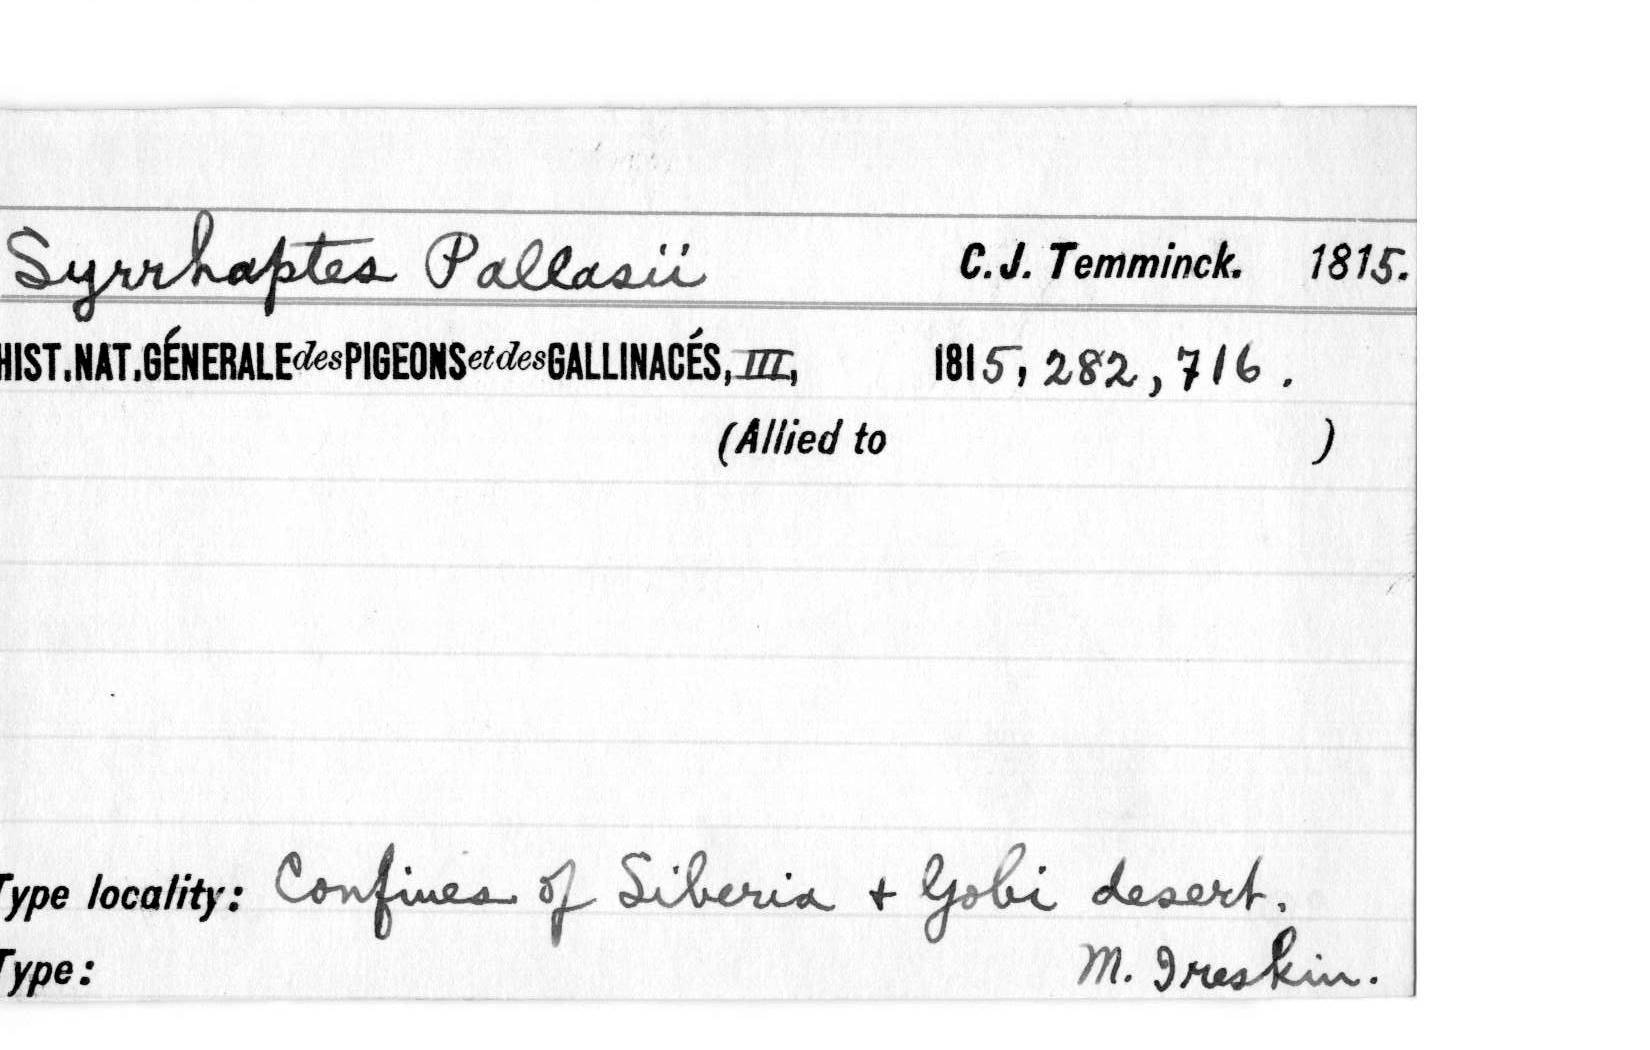 Syrrhaptes Pallasii C.J. Temminck. 1815.
HIST.NAT.GÉNERALE des PIGEONS et des GALLINACÉS, III, 1815, 282, 716.
(Allied to )
Type locality: Confines of Siberia + Gobi desert.
Type: M. Ireskin.